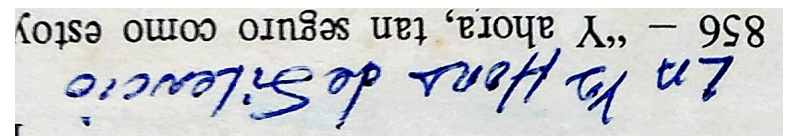 En ½ Hora de Silencio
856 – “Y ahora, tan seguro como estoy